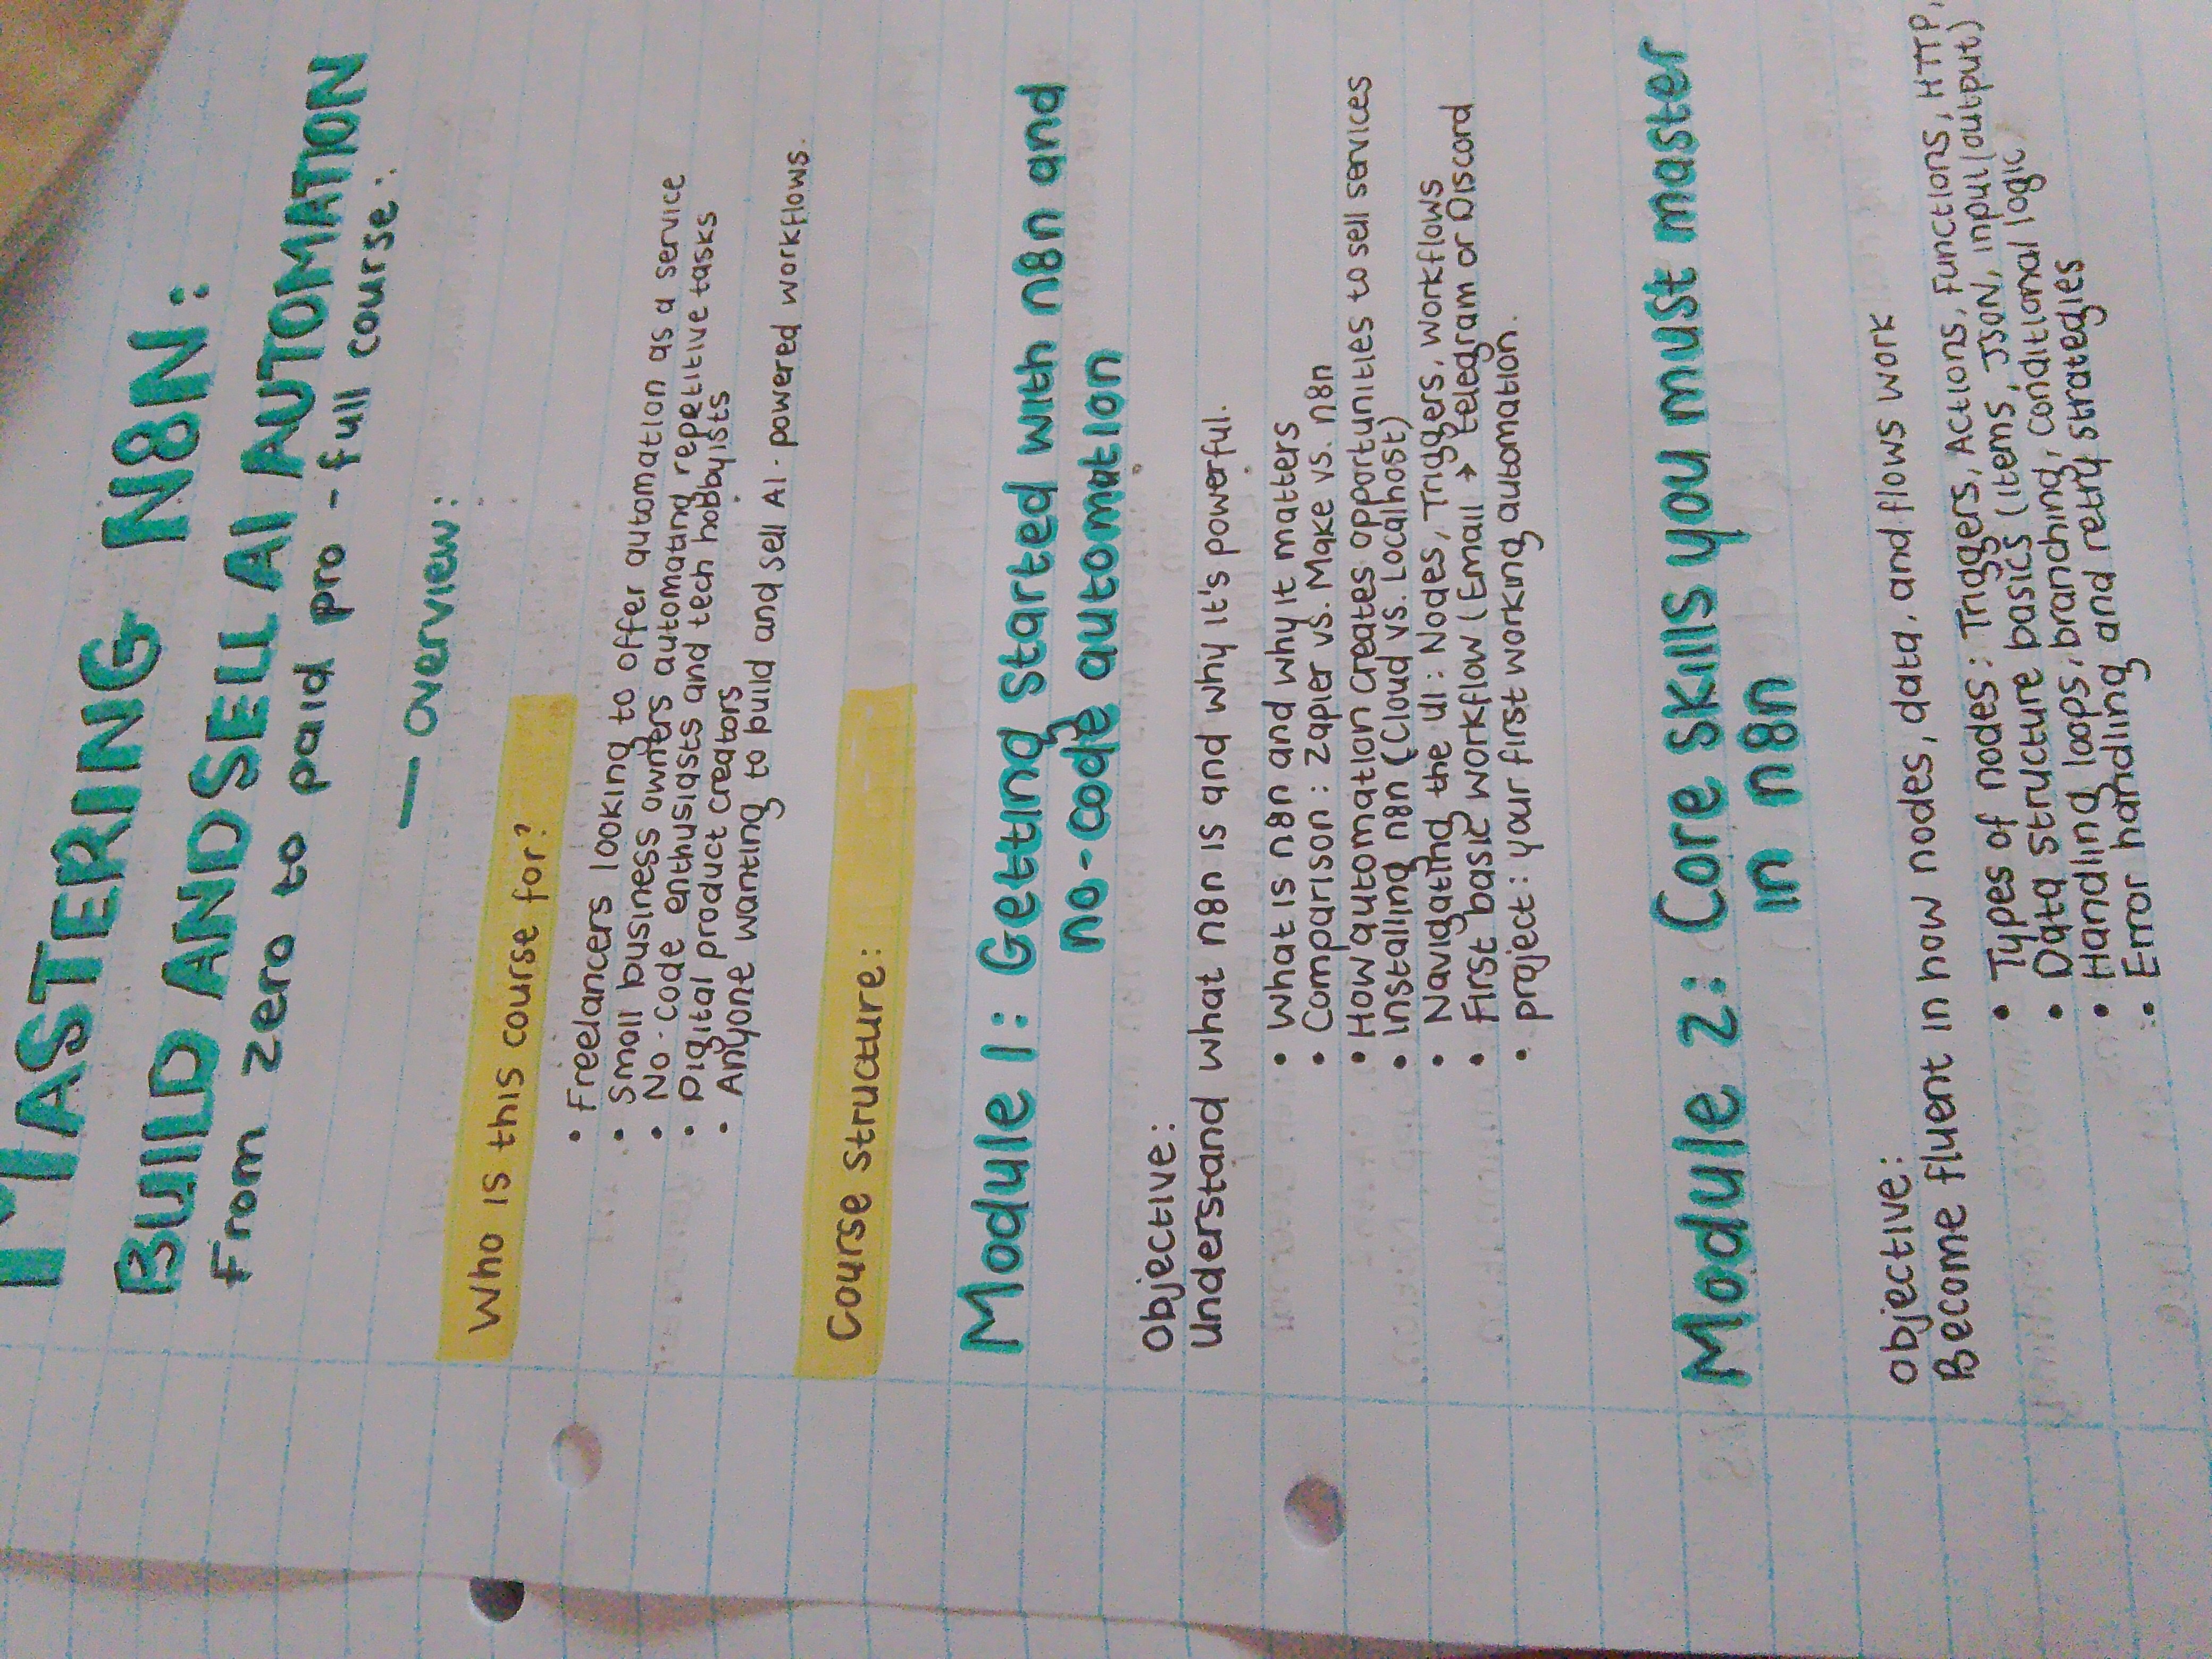 MASTERING N8N:
BUILD AND SELL AI AUTOMATION
From zero to paid pro - full course:
— overview:
Who is this course for?
• Freelancers looking to offer automation as a service
• Small business owners automating repetitive tasks
• No-code enthusiasts and tech hobbyists
• Digital product creators
• Anyone wanting to build and sell AI-powered workflows.
Course structure:
Module 1: Getting started with n8n and
no-code automation
Objective:
Understand what n8n is and why it's powerful.
• What is n8n and why it matters
• Comparison: Zapier vs. Make vs. n8n
• How automation creates opportunities to sell services
• Installing n8n (Cloud vs. Localhost)
• Navigating the UI: Nodes, Triggers, workflows
• First basic workflow (Email → telegram or Discord
• project: your first working automation.
Module 2: Core skills you must master
in n8n
Objective:
Become fluent in how nodes, data, and flows work
• Types of nodes: Triggers, Actions, Functions, HTTP,
• Data structure basics (items, JSON, input/output)
• Handling loops, branching, conditional logic
• Error handling and retry strategies